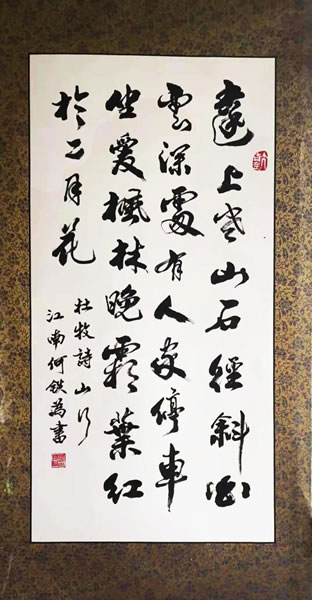 遠上寒山石徑斜白
雲深處有人家停車
坐愛楓林晚霜葉紅
於二月花
杜牧詩山行
江南何鉄為書